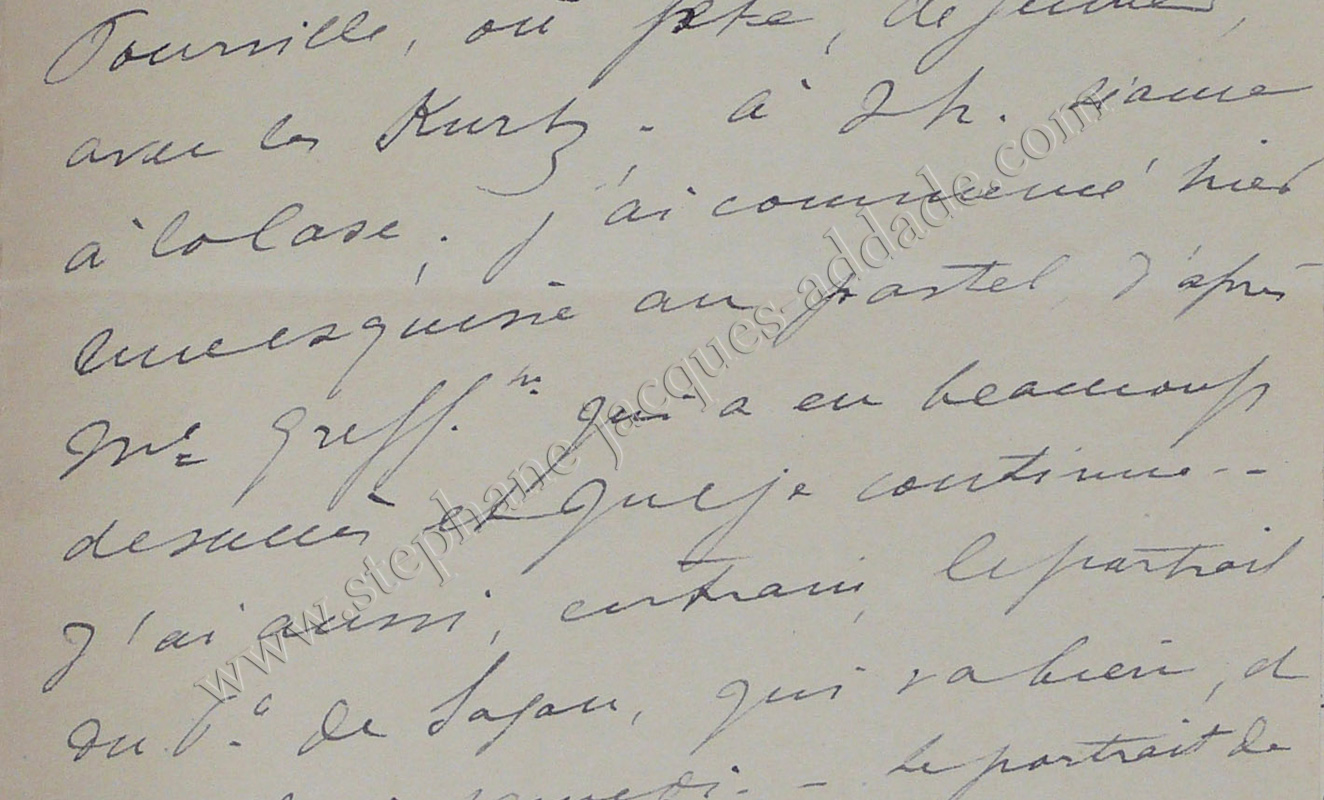 Tourville, où fête, déjeuner,
avec les Kurtz. à 7h.
à la Case. j'ai commencé hier
une esquisse au pastel, d'après
Mme Greff.he qui a eu beaucoup
de succès et que je continue--
J'ai aussi, en train, le portrait
du P.ce de Sagan, qui va bien, d
samedi. - Le portrait de
www.stephane-jacques-addade.com